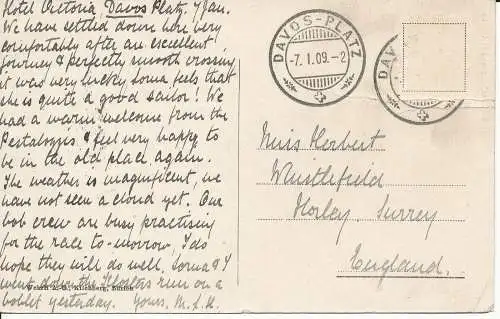 Hotel Victoria Davos Platz, 7 Jan.
We have settled down here very
comfortably after an excellent
journey & perfectly smooth crossing
it was very lucky Lorna feels that
she is quite a good sailor! We
had a warm welcome from the
Pestalozzis & feel very happy to
be in the old place again.
The weather is magnificent, we
have not seen a cloud yet. Our
bob crew are busy practising
for the race to-morrow, I do
hope they will do well, Lorna & I
went down the Klosters run on a
boblet yesterday. Yours. M.L.H.
Kilchberg, Zürich
DAVOS-PLATZ
-7.1.09.-2
DAVOS
Miss Herbert
Whistlefield
Horley. Surrey
England.